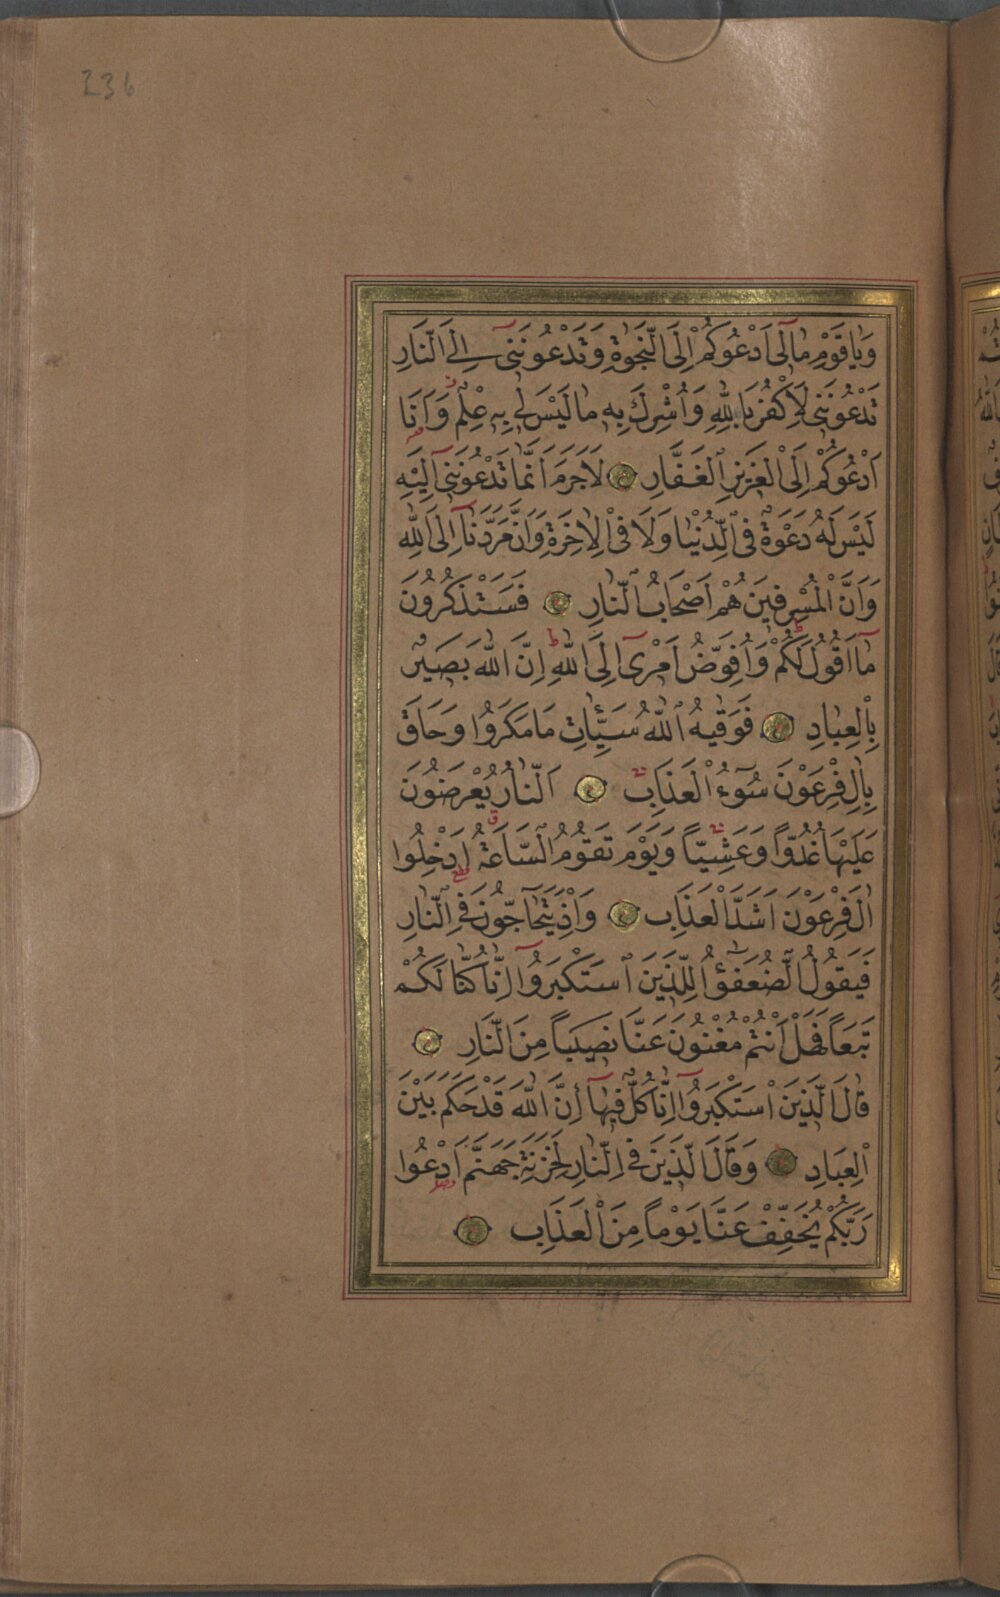 236
وَيَا قَوْمِ مَا لِٓى اَدْعُوكُمْ اِلَى النَّجٰوةِ وَتَدْعُونَنِىٓ اِلَى النَّارِ
تَدْعُونَنِى لِاَكْفُرَ بِاللّٰهِ وَاُشْرِكَ بِهِ مَا لَيْسَ لِى بِهِ عِلْمٌ وَاَنَا
اَدْعُوكُمْ اِلَى الْعَزِيزِ الْغَفَّارِ لَا جَرَمَ اَنَّمَا تَدْعُونَنِىٓ اِلَيْهِ
لَيْسَ لَهُ دَعْوَةٌ فِى الدُّنْيَا وَلَا فِى الْاٰخِرَةِ وَاَنَّ مَرَدَّنَٓا اِلَى اللّٰهِ
وَاَنَّ الْمُسْرِفِينَ هُمْ اَصْحَابُ النَّارِ فَسَتَذْكُرُونَ
مَٓا اَقُولُ لَكُمْ وَاُفَوِّضُ اَمْرِىٓ اِلَى اللّٰهِ اِنَّ اللّٰهَ بَصِيرٌ
بِالْعِبَادِ فَوَقٰيهُ اللّٰهُ سَيِّئَاتِ مَا مَكَرُوا وَحَاقَ
بِاٰلِ فِرْعَوْنَ سُوٓءُ الْعَذَابِ اَلنَّارُ يُعْرَضُونَ
عَلَيْهَا غُدُوًّا وَعَشِيًّا وَيَوْمَ تَقُومُ السَّاعَةُ اَدْخِلُوا
اٰلَ فِرْعَوْنَ اَشَدَّ الْعَذَابِ وَاِذْ يَتَحَٓاجُّونَ فِى النَّارِ
فَيَقُولُ الضُّعَفٰٓؤُا لِلَّذِينَ اسْتَكْبَرُوٓا اِنَّا كُنَّا لَكُمْ
تَبَعًا فَهَلْ اَنْتُمْ مُغْنُونَ عَنَّا نَصِيبًا مِنَ النَّارِ
قَالَ الَّذِينَ اسْتَكْبَرُوٓا اِنَّا كُلٌّ فِيهَٓا اِنَّ اللّٰهَ قَدْ حَكَمَ بَيْنَ
الْعِبَادِ وَقَالَ الَّذِينَ فِى النَّارِ لِخَزَنَةِ جَهَنَّمَ ادْعُوا
رَبَّكُمْ يُخَفِّفْ عَنَّا يَوْمًا مِنَ الْعَذَابِ